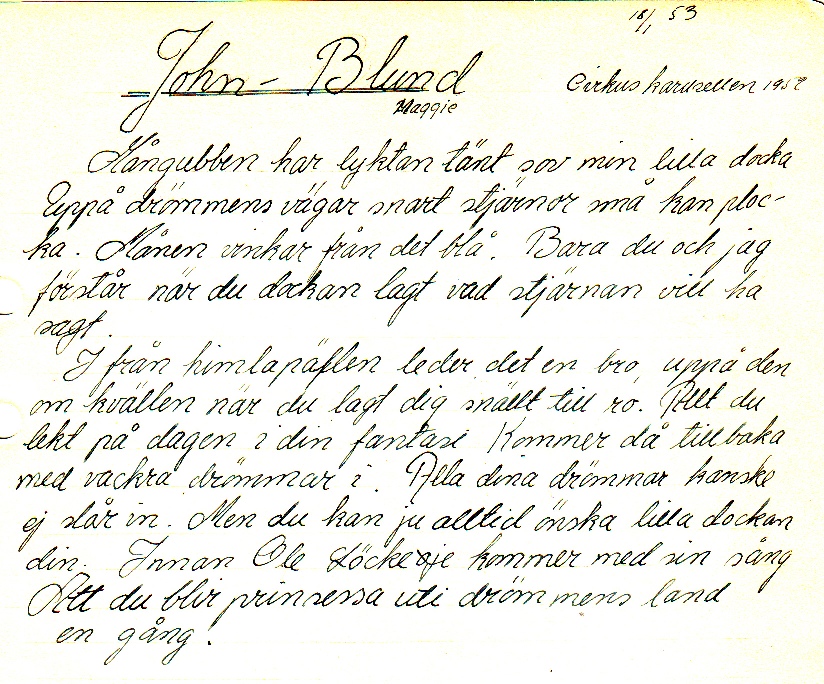 18/1 53
John - Blund
Maggie
Cirkus karusellen 1952
Mångubben har lyktan tänt sov min lilla docka
Uppå drömmens vägar snart stjärnor små kan ploc-
ka. Månen vinkar från det blå. Bara du och jag
förstår när du dockan lagt vad stjärnan vill ha
sagt.
I från himlapäflen leder det en bro, uppå den
om kvällen när du lagt dig snällt till ro. Allt du
lekt på dagen i din fantasi Kommer då tillbaka
med vackra drömmar i. Alla dina drömmar kanske
ej slår in. Men du kan ju alltid önska lilla dockan
din. Innan Ole Löckeöje kommer med sin sång
Att du blir prinsessa uti drömmens land
en gång.